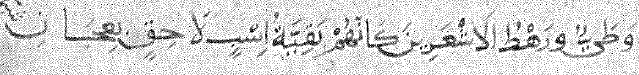 وطيّ ورهط الاشعرين كانهم بقية اسب لاحق بعمان